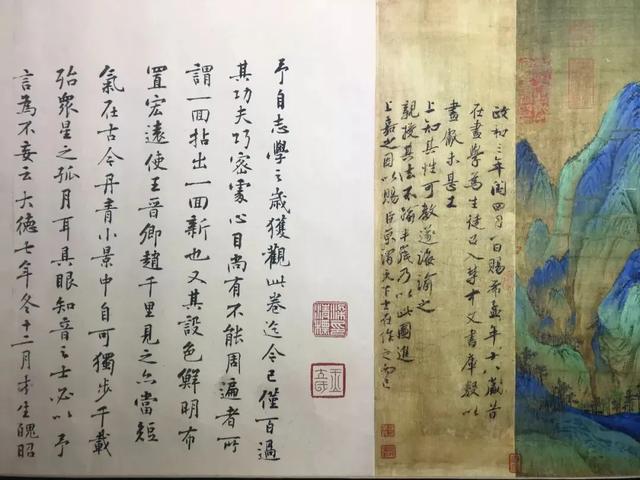 政和三年閏四月一日賜希孟年十八歲昔
在畫學為生徒召入禁中文書庫數以
畫獻未甚工
上知其性可教遂誨諭之
親授其法不踰半歲乃以此圖進
上嘉之因以賜臣京謂天下士在作之而已
予自志學之歲獲觀此卷迄今已僅百過
其功夫巧密處心目尚有不能周遍者所
謂一回拈出一回新也又其設色鮮明布
置宏遠使王晉卿趙千里見之亦當短
氣在古今丹青小景中自可獨步千載
殆衆星之孤月耳具眼知音之士必以予
言為不妄云大德七年冬十二月才生魄昭